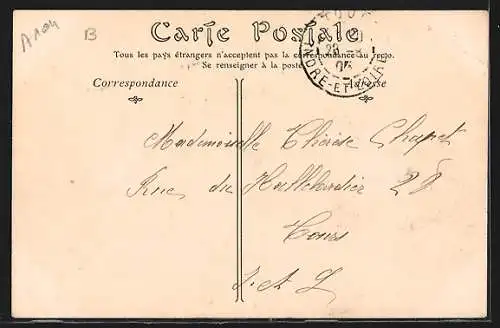 A104
B
Carte Postale
Tous les pays étrangers n'acceptent pas la correspondance au recto.
Se renseigner à la poste
Correspondance
Adresse
28 -8
05
INDRE-ET-LOIRE
Mademoiselle Thérèse Chapet
Rue du Hallebardier 28
Tours
I. A L